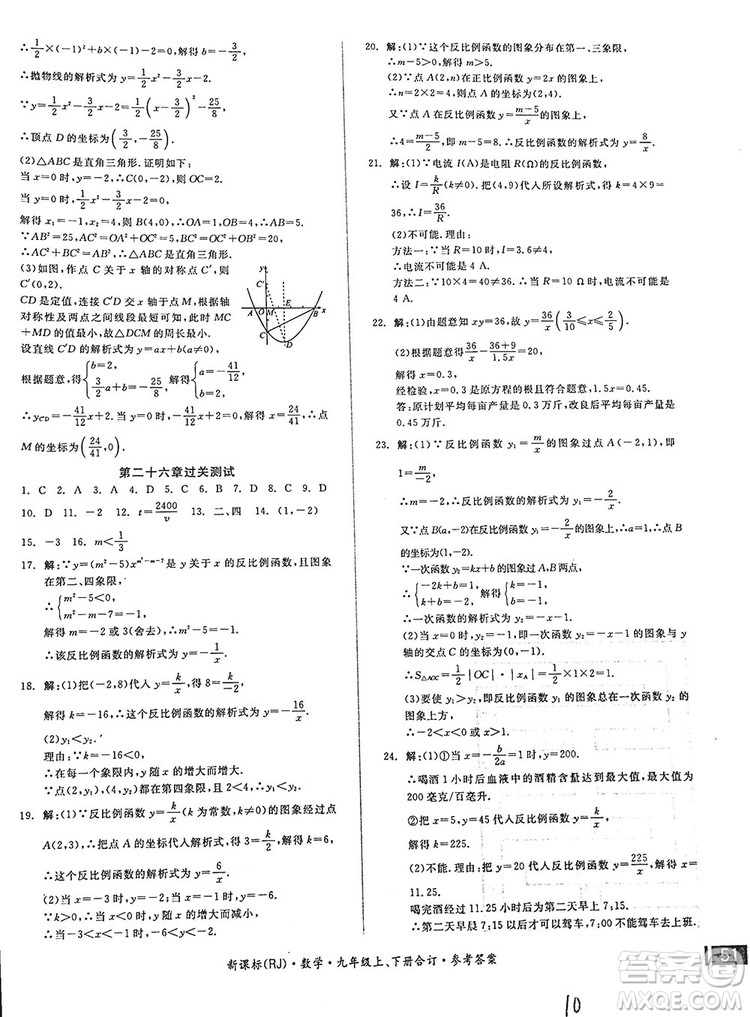 ∴1/2×(-1)²+b×(-1)-2=0.解得 b=-3/2.
∴抛物线的解析式为 y=1/2x²-3/2x-2.
∵y=1/2x²-3/2x-2=1/2(x-3/2)²-25/8,
∴顶点 D 的坐标为(3/2,-25/8).
(2)△ABC 是直角三角形.证明如下:
当 x=0 时,y=-2,∴C(0,-2),则 OC=2.
当 y=0 时,1/2x²-3/2x-2=0,
解得 x₁=-1,x₂=4,则 B(4,0).∴OA=1,OB=4.∴AB=5.
∵AB²=25,AC²=OA²+OC²=5,BC²=OC²+OB²=20,
∴AC²+BC²=AB².∴△ABC 是直角三角形.
(3)如图,作点 C 关于 x 轴的对称点 C′,则
C′(0,2).
CD 是定值,连接 C′D 交 x 轴于 M,根据轴
对称性及两点之间线段最短可知,此时 MC
+MD 的值最小,故△DCM 的周长最小.
设直线 C′D 为 y=ax+b(a≠0),
根据题意,得{b=2, 3/2a+b=-25/8.解得{b=2, a=-41/12.
∴y_C′D=-41/12x+2.∴当 y=0 时,-41/12x+2=0,x=24/41.∴点
M 的坐标为(24/41,0).
y
C′
A
O
M
E
B
x
C
D
第二十六章过关测试
1. C 2. A 3. D 4. D 5. D 6. C 7. B 8. B 9. C
10. D 11. -2 12. t=2400/v 13. 二、四 14. (1,-2)
15. -3 16. m<1/3
17. 解:∵y=(m²-5)x^(m²-m-7) 是 y 关于 x 的反比例函数,且图象
在第二、四象限,
∴{m²-5<0, m²-m-7=-1.
解得 m=-2 或 3(舍去),∴m²-5=-1.
∴该反比例函数的解析式为 y=-1/x.
18. 解:(1)把(-2,8)代入 y=k/x,得 8=k/-2,
解得 k=-16.∴这个反比例函数的解析式为 y=-16/x.
(2)y₁<y₂.
理由:∵k=-16<0,
∴在每一个象限内,函数值 y 随 x 的增大而增大.
∵点(2,y₁),(4,y₂)都在第四象限,且 2<4,∴y₁<y₂.
19. 解:(1)∵反比例函数 y=k/x(k 为常数,k≠0)的图象经过点
A(2,3),∴把点 A 的坐标代入解析式,得 3=k/2,解得 k=6.
∴这个函数的解析式为 y=6/x.
(2)当 x=3 时,y=2,∴点 C 在这个函数的图象上.
∵k>0,∴当 x<0 时,y 随 x 的增大而减小,
∴当-3<x<-1 时,-6<y<-2.
20. 解:(1)∵这个反比例函数的图象分布在第一、三象限,
∴m-5>0.解得 m>5.
(2)∵点 A(2,n)在正比例函数 y=2x 的图象上,
∴n=2×2=4,则点 A 的坐标为(2,4).
又∵点 A 在反比例函数 y=m-5/x的图象上,
∴4=m-5/2,即 m-5=8.∴反比例函数的解析式为 y=8/x.
21. 解:(1)∵电流 I(A)是电阻 R(Ω)的反比例函数,
∴设 I=k/R(k≠0).把(4,9)代入所设解析式,得 k=4×9=
36,∴I=36/R.
(2)不可能.理由:
方法一:∵当 R=10 时,I=3.6≠4,
∴电流不可能是 4 A.
方法二:∵10×4=40≠36,∴当 R=10 时,电流不可能是
4 A.
22. 解:(1)由题意知 xy=36,故 y=36/x(3/10≤x≤2/5).
(2)根据题意,得36/x-36+9/1.5x=20.
解得 x=0.3.
经检验,x=0.3 是原方程的根且符合题意,1.5x=0.45.
答:原计划平均每亩产量是 0.3 万斤,改良后平均每亩产量是
0.45 万斤.
23. 解:(1)∵反比例函数 y₁=m/x的图象过点 A(-2,1),即
1=m/-2,∴m=-2.∴反比例函数的解析式为 y₁=-2/x.
又∵点 B(a,-2)在 y₁=-2/x的图象上,∴a=1,∴点 B
的坐标为(1,-2).
∵一次函数 y₂=kx+b 的图象过 A,B 两点,
∴{-2k+b=1, k+b=-2.解得{k=-1, b=-1.
∴一次函数的解析式为 y₂=-x-1.
(2)当 x=0 时,y₂=-x-1=-1,即一次函数的图象与 y
轴的交点 C 的坐标为(0,-1).
∴S△AOC=1/2|OC|·|x_A|=1/2×1×2=1.
(3)要使 y₁>y₂,即反比例函数 y₁ 的图象总在一次函数 y₂ 的
图象上方,
∴-2<x<0 或 x>1.
24. 解:(1)①当 x=-b/2a=1 时,y=200,
∴喝酒 1 小时后血液中的酒精含量达到最大值,最大值为
200 毫克/百毫升.
②把 x=5,y=45 代入反比例函数 y=k/x,
解得 k=225.
(2)不能.理由:把 y=20 代入反比例函数 y=225/x,得 x=
11.25.
喝完酒经过 11.25 小时后为第二天早上 7:15.
∴第二天早上 7:15 以后才可以驾车,7:00 不能驾车去上班.
新课标(RJ)·数学·九年级上、下册合订·参考答案
51
10